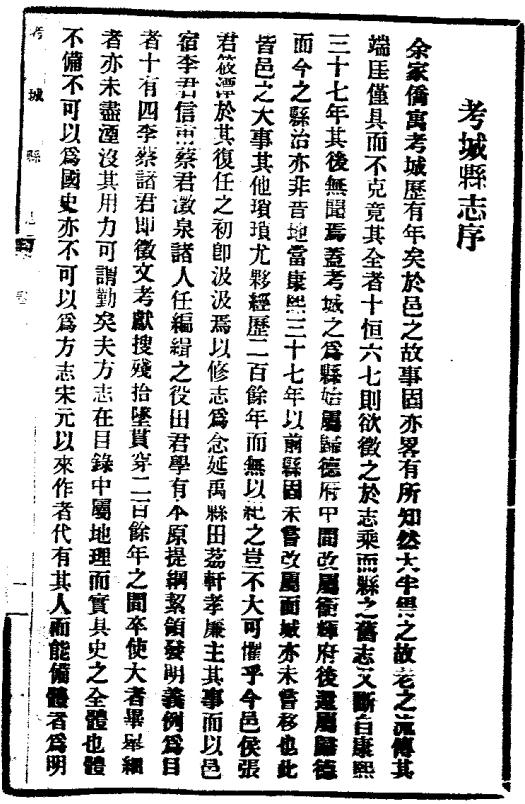 考城縣志序
余家僑寓考城歷有年矣於邑之故事固亦畧有所知然大半得之故老之流傳其
端匡僅具而不克竟其全者十恒六七則欲徵之於志乘而縣之舊志又斷自康熙
三十七年其後無聞焉蓋考城之爲縣始屬歸德府中間改屬衞輝府後還屬歸德
而今之縣治亦非昔地當康熙三十七年以前縣固未嘗改屬而城亦未嘗移也此
皆邑之大事其他瑣瑣尤夥經歷二百餘年而無以紀之豈不大可懼乎今邑侯張
君筱潭於其復任之初卽汲汲焉以修志爲念延禹縣田荔軒孝廉主其事而以邑
宿李君信甫蔡君澂泉諸人任編緝之役田君學有本原提綱絜領發明義例爲目
者十有四李蔡諸君卽徵文考獻搜殘拾墜貫穿二百餘年之間卒使大者畢舉細
者亦未盡湮沒其用力可謂勤矣夫方志在目錄中屬地理而實具史之全體也體
不備不可以爲國史亦不可以爲方志宋元以來作者代有其人而能備體者爲明
考城縣
一